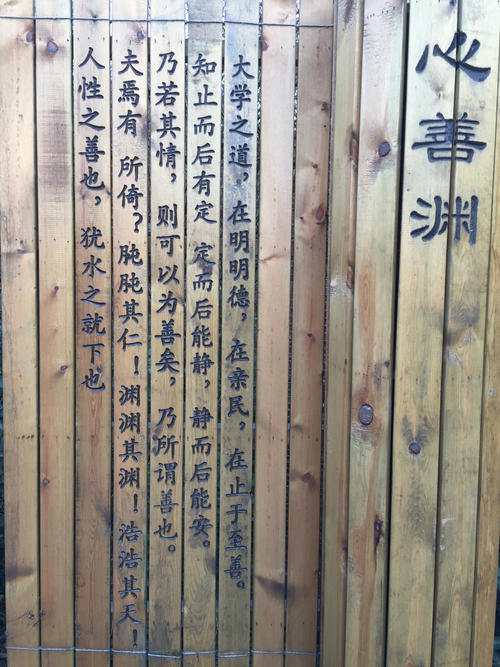 心善渊
大学之道，在明明德，在亲民，在止于至善。
知止而后有定 定而后能静，静而后能安。
乃若其情，则可以为善矣，乃所谓善也。
夫焉有 所倚？肫肫其仁！渊渊其渊！浩浩其天！
人性之善也，犹水之就下也